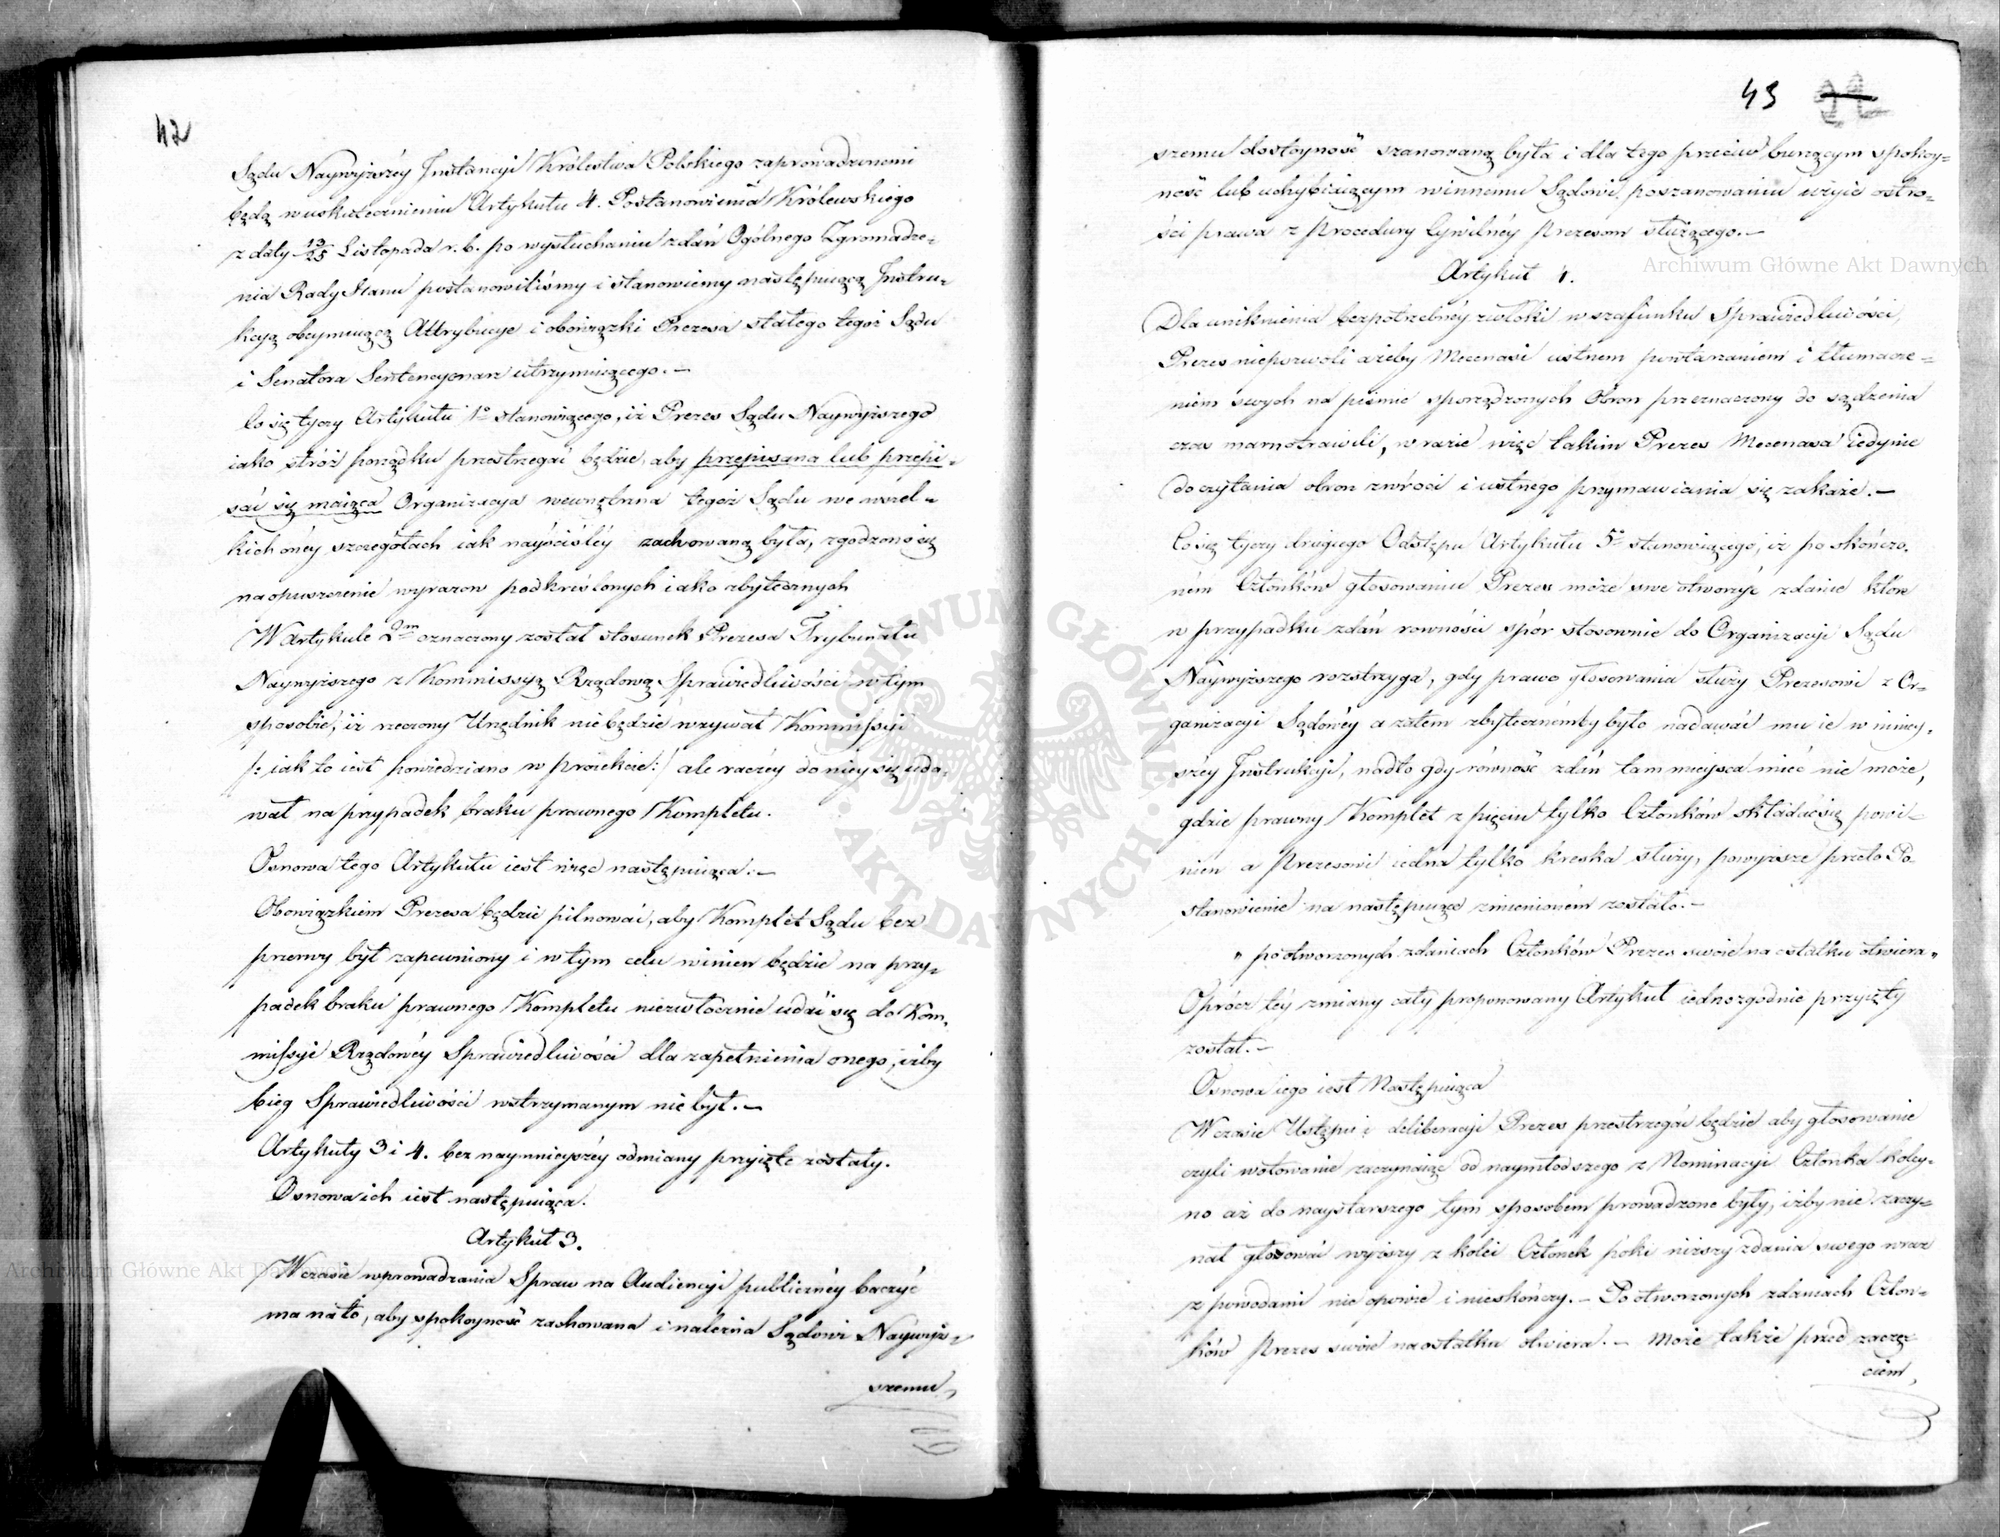 42
Sądu Naywyższéy Instancyi Królestwa Polskiego zaprowadzonemi
będą w uskutecznieniu Artykułu 4. Postanowienia Królewskiego
z daty 13/25 Listopada r. b. po wysłuchaniu zdań Ogólnego Zgromadze-
nia Rady Stanu postanowiliśmy i stanowiemy następuiącą Instru-
kcyą obeymuiącą Attrybucye i obowiązki Prezesa stałego tegoż Sądu
i Senatora Sentencyonarz utrzymuiącego. —
Co się tyczy Artykułu 1o stanowiącego, iż Prezes Sądu Naywyższego
iako stróż porządku przestrzegać będzie, aby przepisana lub przepi-
sać się maiąca Organizacya wewnętrzna tegoż Sądu we wszel-
kich onéy szczegółach iak nayściśléy zachowaną była, zgodzono się
na opuszczenie wyrazow podkreślonych iako zbytecznych
W Artykule 2m oznaczony został stosunek Prezesa Trybunału
Naywyższego z Kommissyą Rządową Sprawiedliwości w tym
sposobie, iż rzeczony Urzędnik nie będzie wzywał Kommissyi
/: iak to iest powiedziano w proiekcie :/ ale raczéy do niey się uda-
wał na przypadek braku prawnego Kompletu.
Osnowa tego Artykułu iest więc następuiąca. —
Obowiązkiem Prezesa będzie pilnować, aby Komplet Sądu bez
przerwy był zapewniony i w tym celu winien będzie na przy-
padek braku prawnego Kompletu niezwłocznie udać się do Kom-
missyi Rządowéy Sprawiedliwości dla zapełnienia onego, iżby
bieg Sprawiedliwości wstrzymanym nie był. —
Artykuły 3 i 4. bez naymnieyszéy odmiany przyięte zostały.
Osnowa ich iest następuiąca.
Artykuł 3.
W czasie wprowadzania Spraw na Audiencyi publicznéy baczyć
ma na to, aby spokoyność zachowana i należna Sądowi Naywyż-
szemu
43
szemu dostoyność szanowaną była i dla tego przeciw burzącym spokoy-
ność lub uchybiaiącym winnemu Sądowi poszanowaniu użyie ostro-
ści prawa z Procedury Cywilnéy Prezesom służącego. —
Artykuł 4.
Dla uniknienia bezpotrzebnéy zwłoki w szafunku Sprawiedliwości,
Prezes niepozwoli ażeby Mecenasi ustnem powtarzaniem i tłumacze-
niem swych na piśmie sporządzonych Obron przeznaczony do sądzenia
czas marnotrawili, w razie więc takim Prezes Mecenasa iedynie
do czytania obron zwróci i ustnego przymawiania się zakaże. —
Co się tyczy drugiego Odstępu Artykułu 5o stanowiącego, iż po skończo-
ném Członków głosowaniu Prezes może swe otworzyć zdanie które
w przypadku zdań rowności spór stosownie do Organizacyi Sądu
Naywyższego rozstrzyga, gdy prawo głosowania służy Prezesowi z Or-
ganizacyi Sądowéy a zatem zbytecznémby było nadawać mu ie w niniey-
széy Instrukcyi, nadto gdy równość zdań tam mieysca mieć nie może,
gdzie prawny Komplet z pięciu tylko Członków składać się powi-
nien a Prezesowi iedna tylko kreska służy, powyższe przeto Po-
stanowienie na następuiące zmienioném zostało. —
„ po otworzonych zdaniach Członków Prezes swoie na ostatku otwiera „
Oprócz téy zmiany cały proponowany Artykuł iednozgodnie przyięty
został. —
Osnowa iego iest Następuiąca
W czasie Ustępu i deliberacyi Prezes przestrzegać będzie aby głosowanie
czyli wotowanie zaczynaiąc od naymłodszego z Nominacyi Członka koley-
no aż do naystarszego tym sposobem prowadzone były, iżby nie zaczy-
nał głosować wyższy z kolei Członek póki niższy zdania swego wraz
z powodami nie opowie i nieskończy. — Po otworzonych zdaniach Człon-
ków Prezes swoie na ostatku otwiera. — Może także przed zaczę-
ciem,
Archiwum Główne Akt Dawnych
Archiwum Główne Akt Dawnych
ARCHIWUM GŁÓWNE · AKT DAWNYCH ·